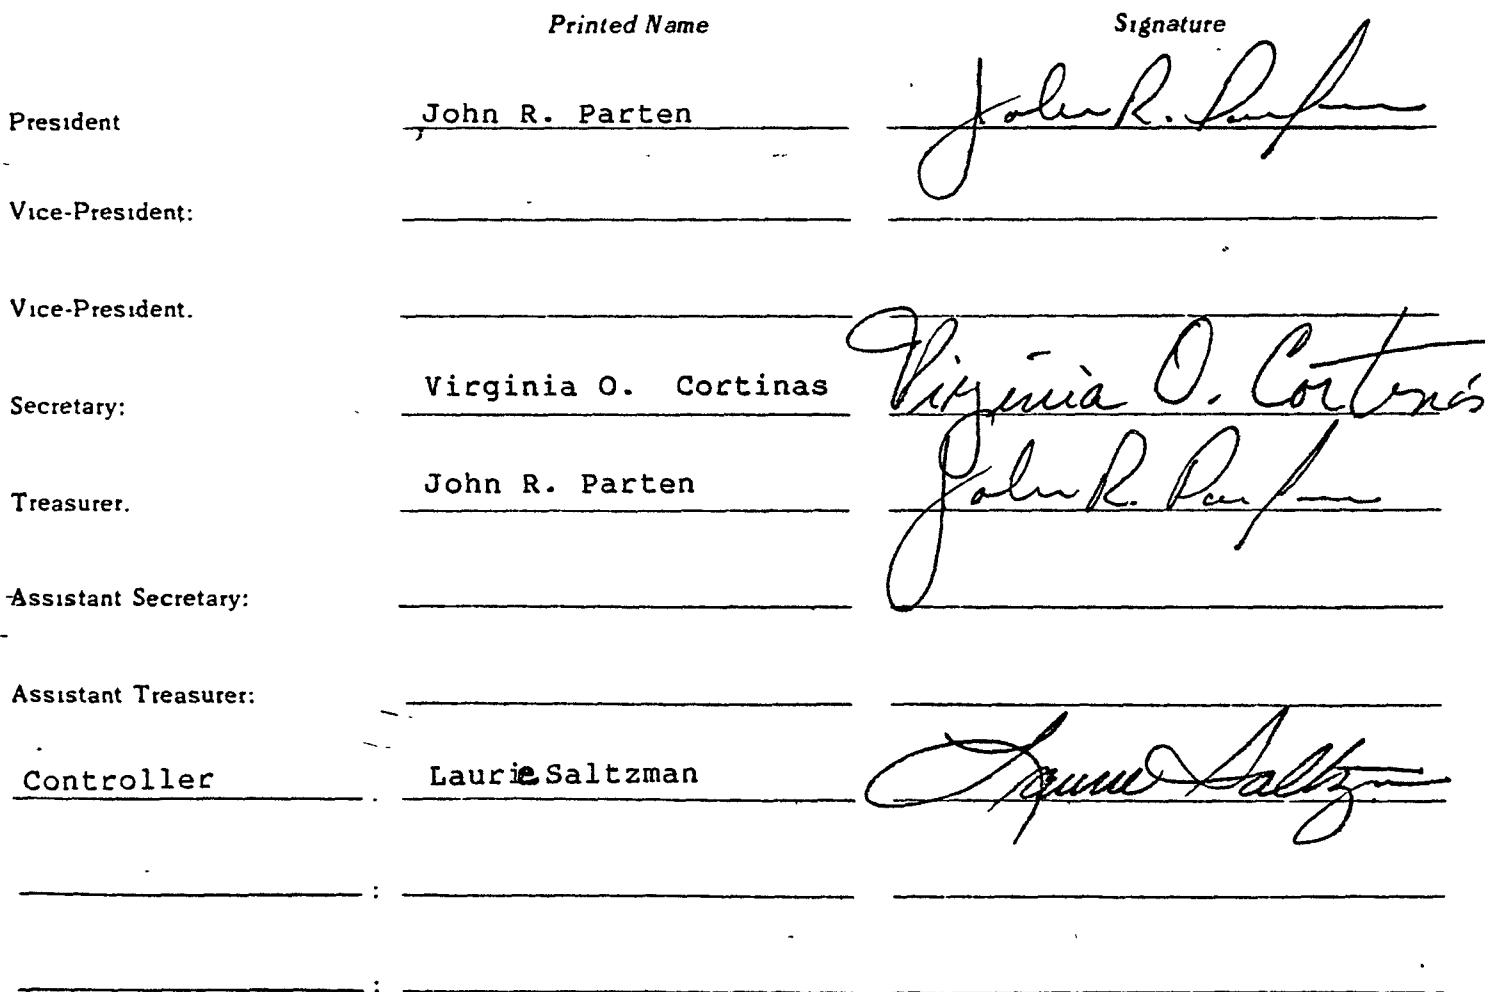 Printed Name Signature
President John R. Parten John R. Parten
Vice-President:
Vice-President.
Secretary: Virginia O. Cortinas Virginia O. Cortinas
Treasurer. John R. Parten John R. Parten
Assistant Secretary:
Assistant Treasurer:
Controller : Laurie Saltzman Laurie Saltzman
:
: